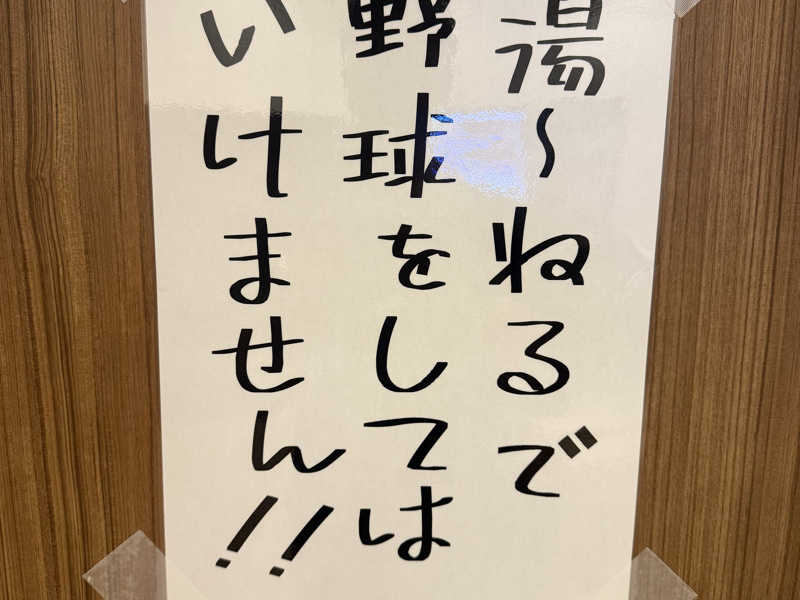 湯～ねるで
野球をしては
いけません!!